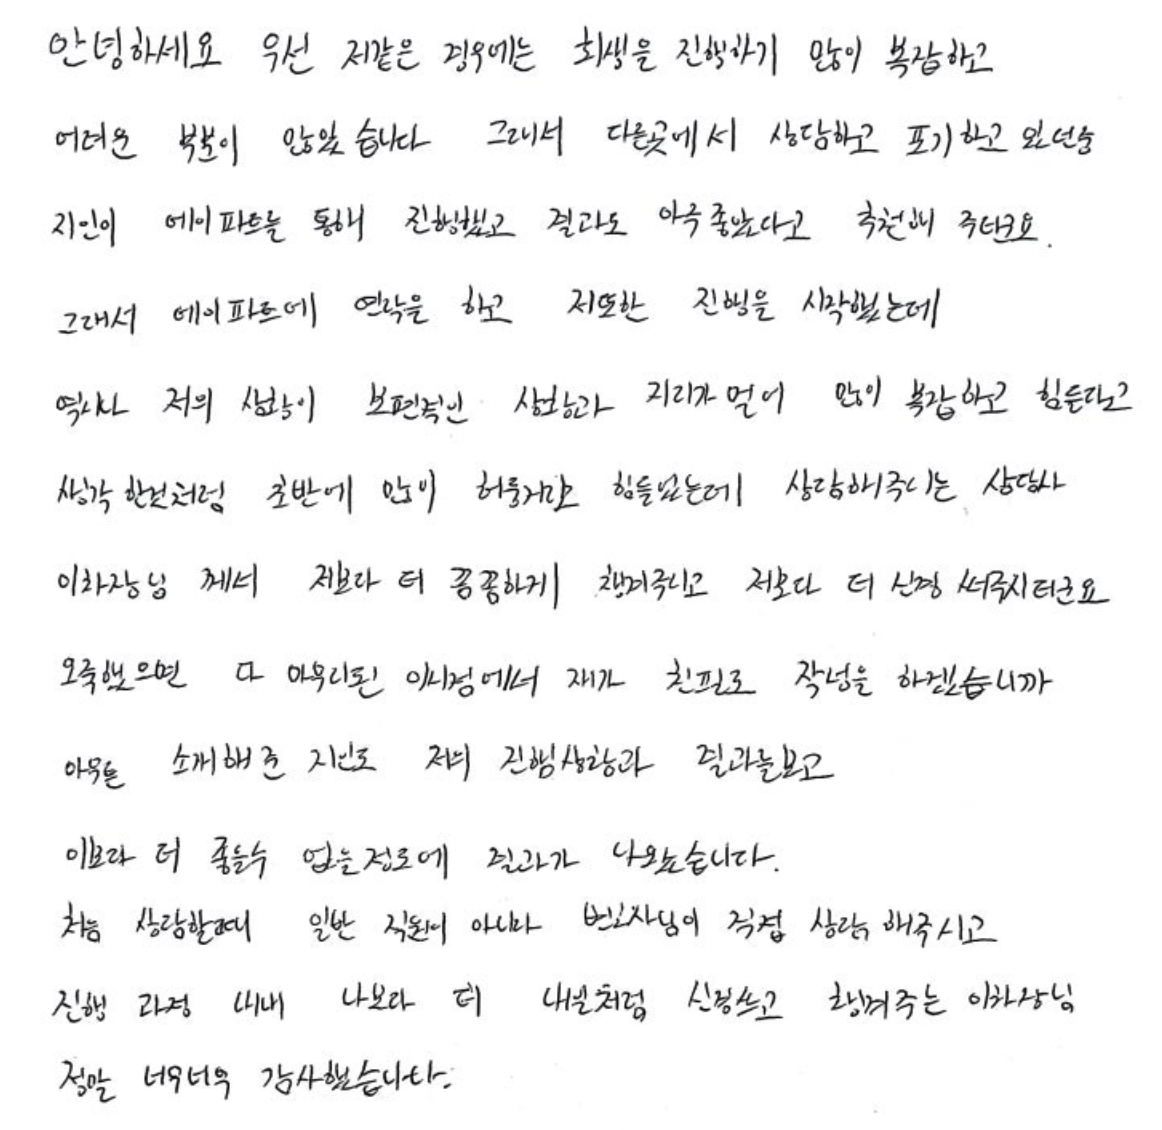 안녕하세요 우선 저같은 경우에는 회생을 진행하기 많이 복잡하고
어려운 부분이 많았습니다 그래서 다른곳에서 상담하고 포기하고 있던중
지인이 에이파트를 통해 진행했고 결과도 아주 좋았다고 추천해 주더군요.
그래서 에이파트에 연락을 하고 저또한 진행을 시작했는데
역시나 저의 상황이 보편적인 상황과 거리가 멀어 많이 복잡하고 힘든다고
생각한것처럼 초반에 많이 허둥거리고 힘들었는데 상담해주시는 상담사
이차장님 께서 저보다 더 꼼꼼하게 챙겨주시고 저보다 더 신경 써주시더군요
오죽했으면 다 마무리된 이시점에서 제가 친필로 작성을 하겠습니까
아무튼 소개해준 지인도 저의 진행상황과 결과를보고
이보다 더 좋을수 없을정도에 결과가 나왔습니다.
처음 상담할때 일반 직원이 아니라 변호사님이 직접 상담 해주시고
진행 과정 내내 나보다 더 내일처럼 신경쓰고 챙겨주는 이차장님
정말 너무너무 감사했습니다.